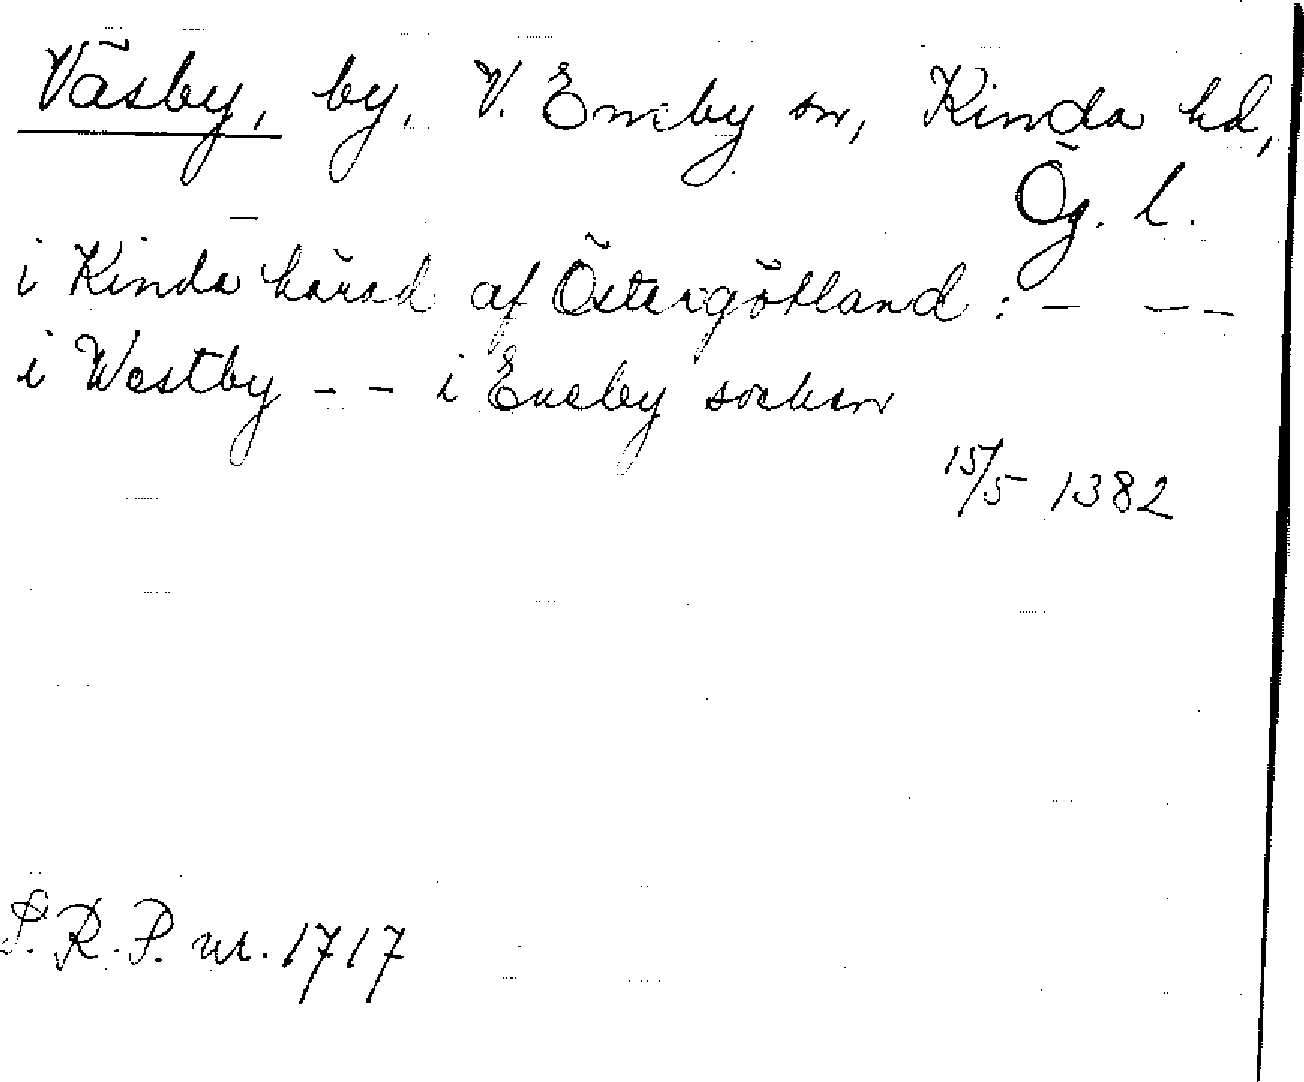 Väsby, by, V. Eneby sn, Kinda hd,
Ög. l.
i Kinda härad af Östergötland : — — —
i Westby - - i Eneby socken
15/5 1382
S.R.P. nr. 1717